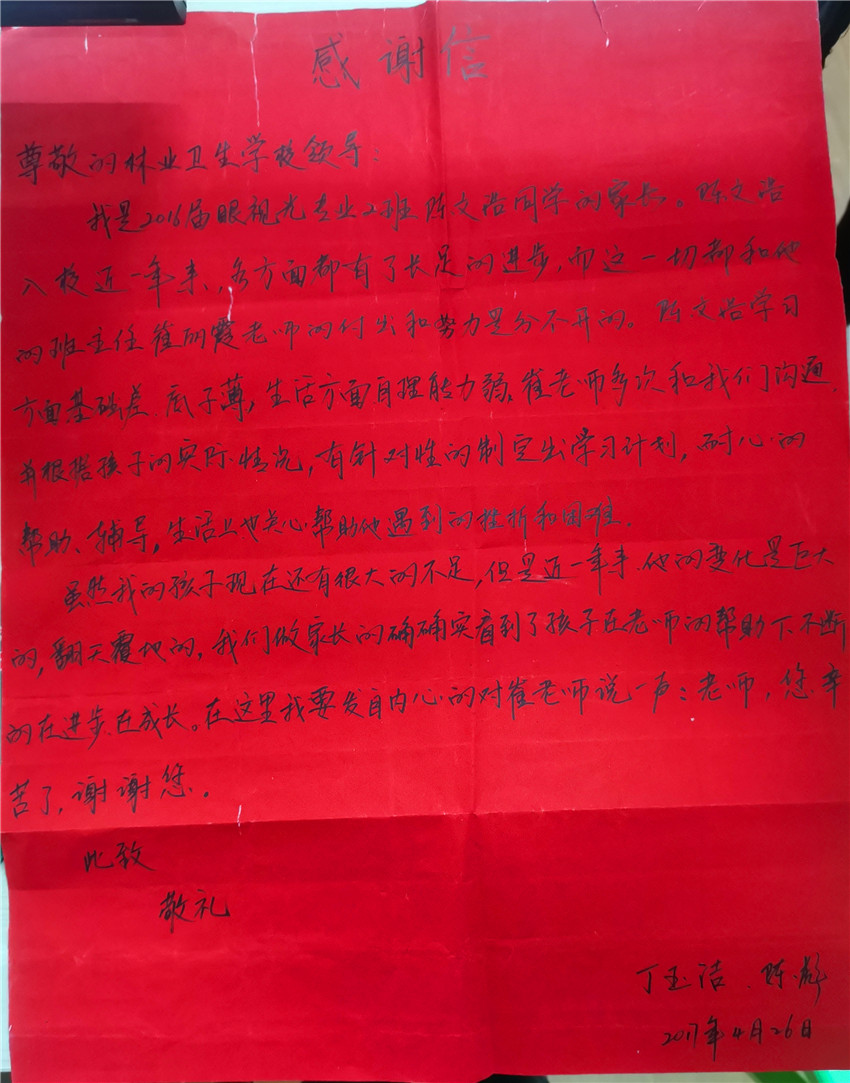 感谢信
尊敬的林业卫生学校领导：
我是2016届眼视光专业2班陈文浩同学的家长。陈文浩
入校近一年来，各方面都有了长足的进步，而这一切都和他
的班主任崔丽霞老师的付出和努力是分不开的。陈文浩学习
方面基础差、底子薄，生活方面自理能力弱，崔老师多次和我们沟通，
并根据孩子的实际情况，有针对性的制定出学习计划，耐心的
帮助、辅导，生活上也关心帮助他遇到的挫折和困难。
虽然我的孩子现在还有很大的不足，但是近一年来，他的变化是巨大
的，翻天覆地的，我们做家长的确确实看到了孩子在老师的帮助下不断
的在进步在成长。在这里我要发自内心的对崔老师说一声：老师，您辛
苦了，谢谢您。
此致
敬礼
丁玉洁、陈彪
2017年4月26日